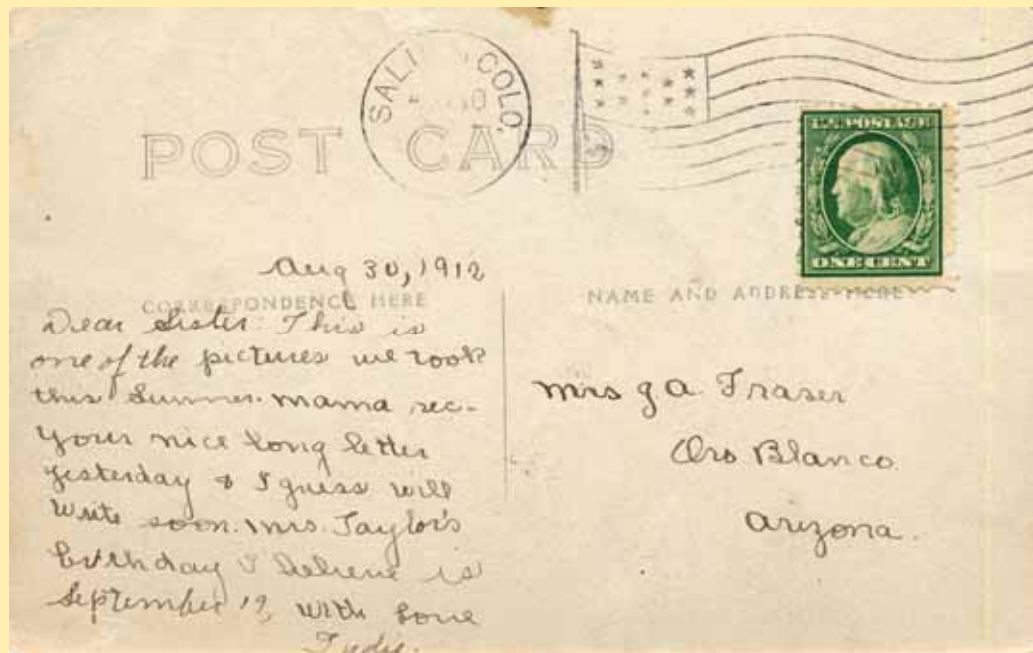 SALI COLO.
POST CARD
U.S. POSTAGE
ONE CENT
Aug 30, 1912
CORRESPONDENCE HERE
NAME AND ADDRESS HERE
Dear Sister: This is
one of the pictures we took
this Summer. Mama rec-
your nice long letter
yesterday & I guess will
write soon. Mrs. Taylor's
birthday I believe is
September 19, with love
Mrs J A Fraser
Oro Blanco
Arizona.